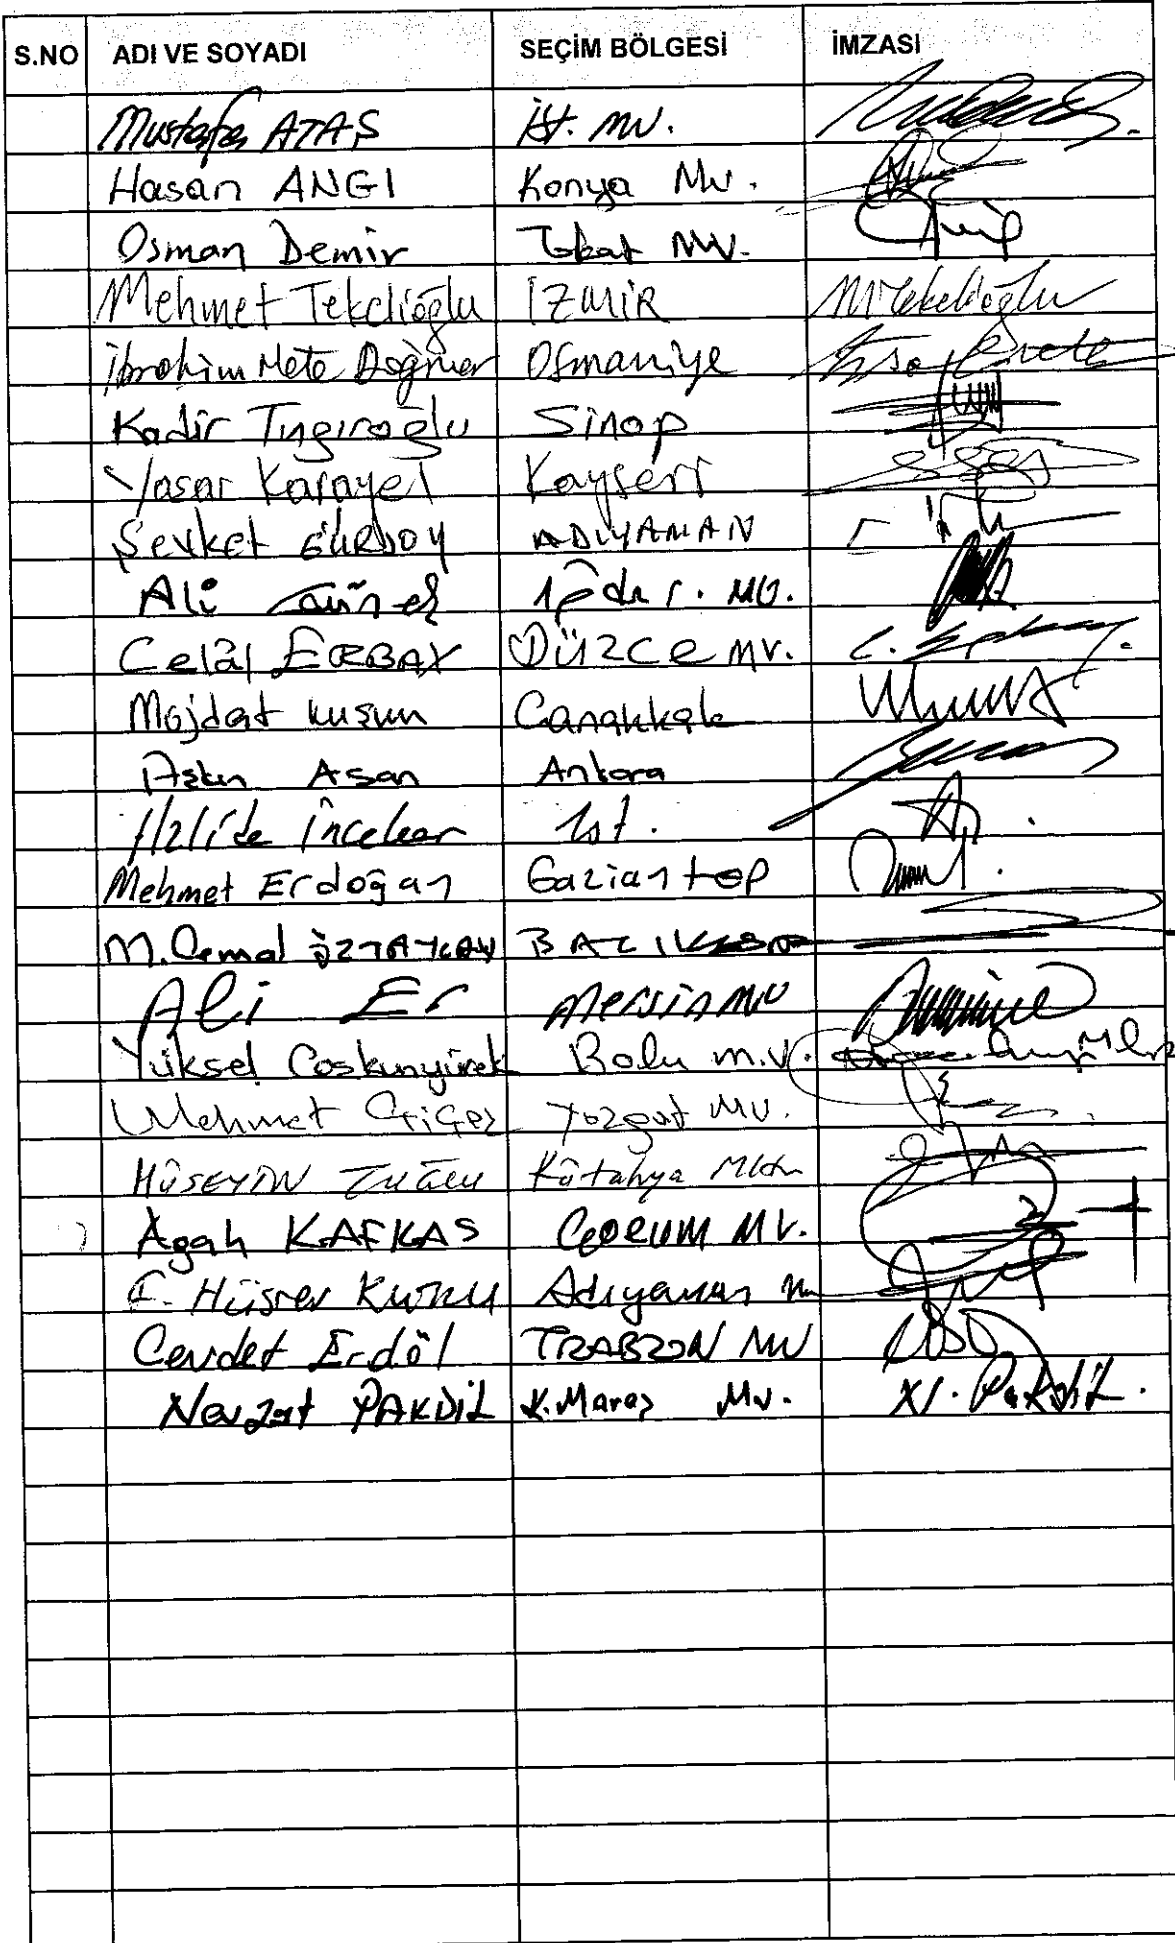 S.NO ADI VE SOYADI SEÇİM BÖLGESİ İMZASI
Mustafa ATAŞ İst. mv.
Hasan ANGI Konya Mv.
Osman Demir Tokat MV.
Mehmet Tekelioğlu İZMİR M Tekelioğlu
İbrahim Mete Doğruer Osmaniye
Kadir Tıngıroğlu Sinop
Yaşar Karayel Kayseri
Şevket GÜRSOY ADIYAMAN
Ali Güner Iğdır. MV.
Celâl ERBAY DÜZCE MV.
Müjdat Kuşun Çanakkale
Aşkın Asan Ankara
Halide İncekar İst.
Mehmet Erdoğan Gaziantep
M. Cemal ÖZTAYLAN BALIKESİR
Ali Er Mersin MV
Yüksel Coşkunyürek Bolu m.v.
Mehmet Çiçek Yozgat MV.
HÜSEYİN TUĞCU Kütahya
Agah KAFKAS ÇORUM MV.
F. Hüsrev Kutlu Adıyaman
Cevdet Erdöl TRABZON MV
Nevzat PAKDİL K.Maraş Mv. N. Pakdil.